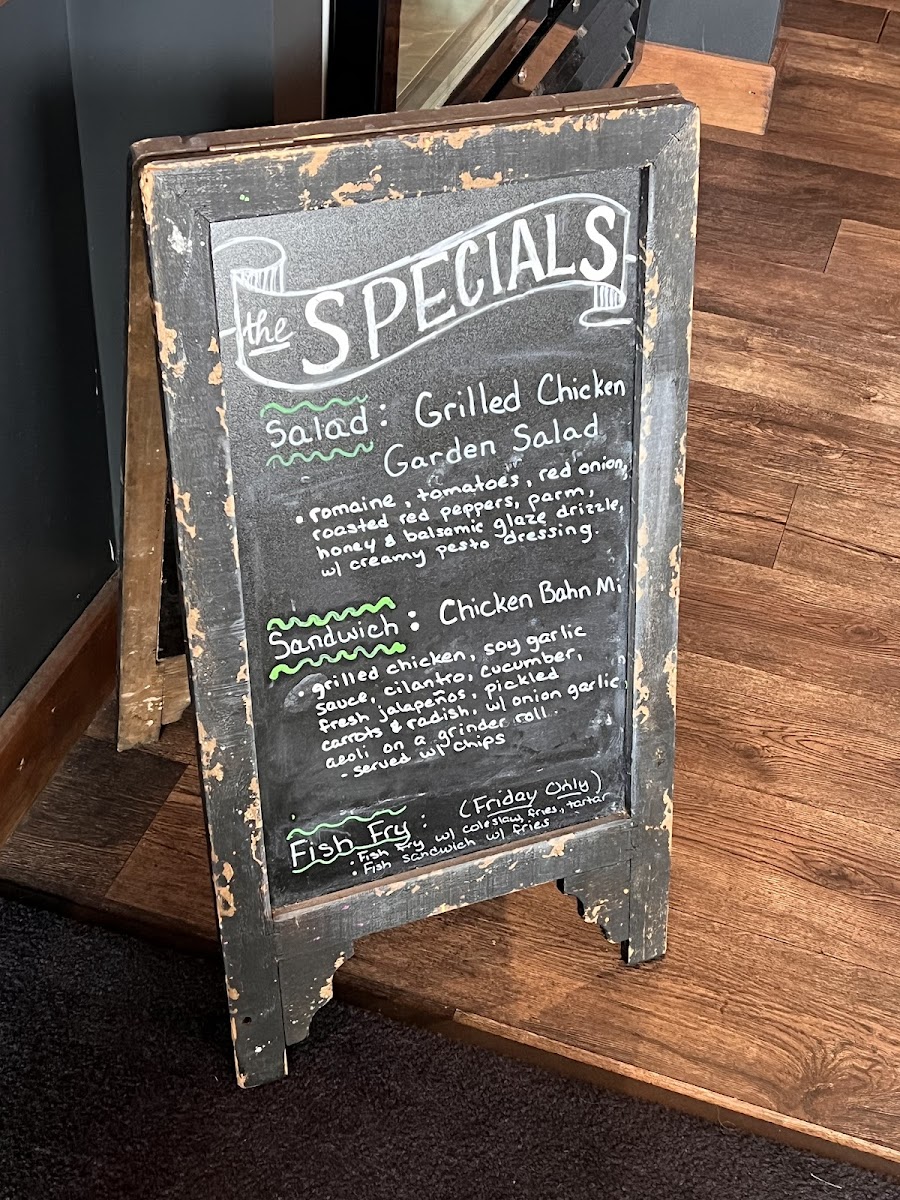 the SPECIALS
Salad: Grilled Chicken
Garden Salad
• romaine, tomatoes, red onion,
roasted red peppers, parm,
honey & balsamic glaze drizzle,
w/ creamy pesto dressing.
Sandwich: Chicken Bahn Mi
• grilled chicken, soy garlic
sauce, cilantro, cucumber,
fresh jalapeños, pickled
carrots & radish, w/ onion garlic
aeoli on a grinder roll.
- served w/ chips
Fish Fry: (Friday Only)
• Fish Fry w/ coleslaw, fries, tartar
• Fish sandwich w/ fries